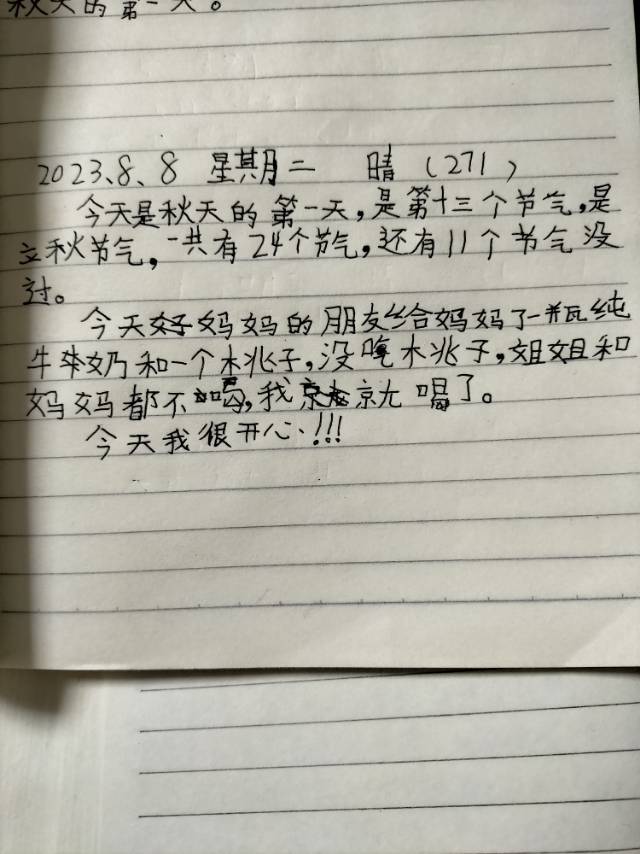 秋天的第一天。
2023、8、8 星期二 晴（271）
今天是秋天的第一天，是第十三个节气，是
立秋节气，一共有24个节气，还有11个节气没
过。
今天妈妈的朋友给妈妈了一瓶纯
牛奶和一个木兆子，没吃木兆子，姐姐和
妈妈都不喝，我就喝了。
今天我很开心！！！